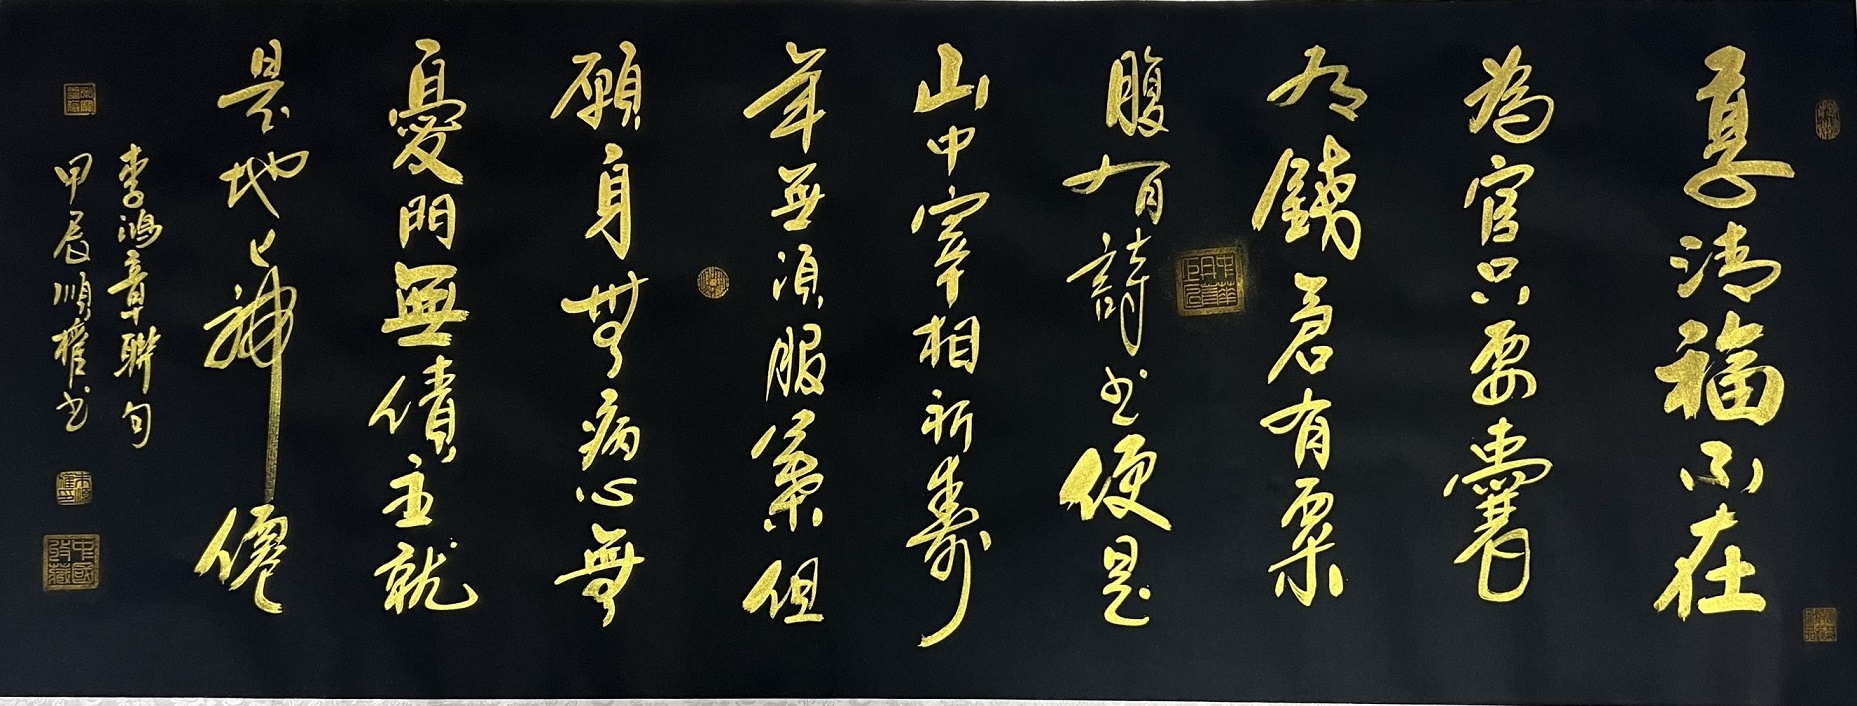 享清福不在
為官只要囊
有錢倉有粟
腹有詩書便是
山中宰相祈壽
年無須服藥但
願身無病心無
憂門無債主就
是地上神僊
李鴻章聯句
甲辰順權書